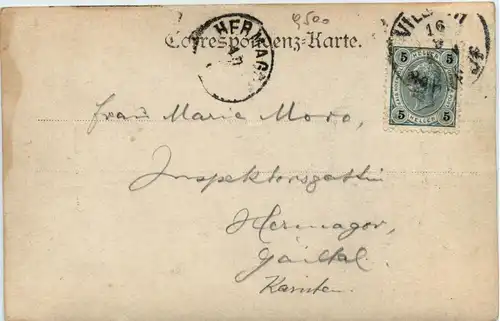 9500
HERMAG
VILL
16
Correspondenz-Karte.
5 5
HELLER
5 5
Frau Marie Moro,
Inspektorsgattin
Hermagor,
Gailtal.
Kärnten.